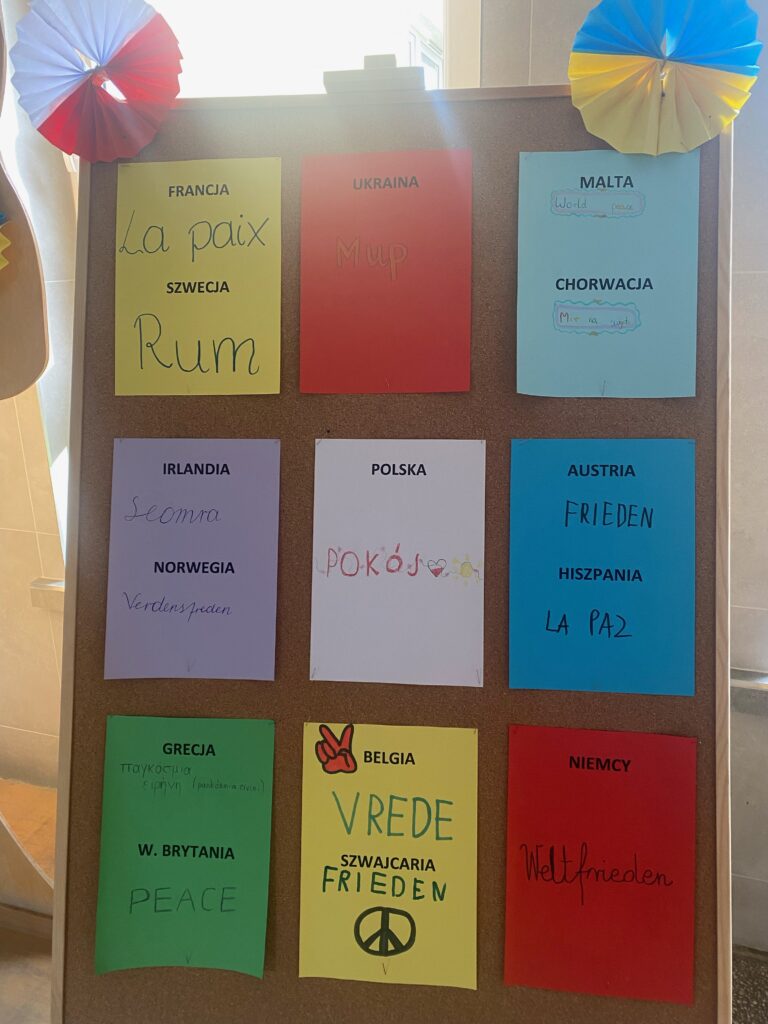 FRANCJA
La paix
SZWECJA
Rum
UKRAINA
Мир
MALTA
World peace
CHORWACJA
Mir na
IRLANDIA
Seomra
NORWEGIA
Verdensfreden
POLSKA
POKÓJ
AUSTRIA
FRIEDEN
HISZPANIA
LA PAZ
GRECJA
παγκόσμια
ειρήνη
W. BRYTANIA
PEACE
BELGIA
VREDE
SZWAJCARIA
FRIEDEN
NIEMCY
Weltfrieden